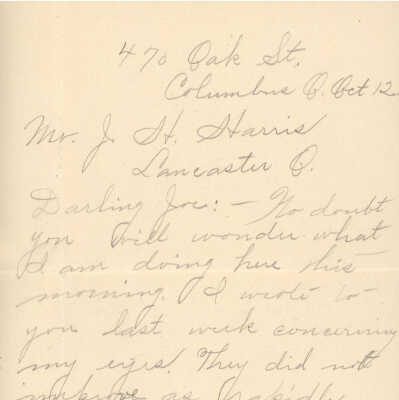 470 Oak St,
Columbus O. Oct 12.
Mr. J. H. Harris
Lancaster O.
Darling Joe: – No doubt
you will wonder what
I am doing here this
morning. I wrote to
you last week concerning
my eyes. They did not
improve as rapidly